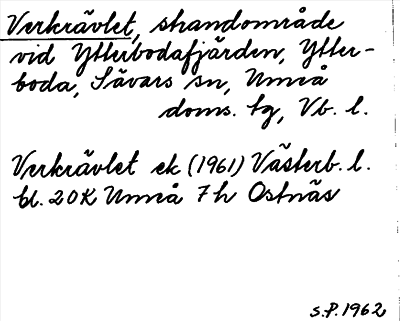 Verkrävlet, strandområde
vid Ytterbodafjärden, Ytter-
boda, Sävars sn, Umeå
doms. tg, Vb. l.
Verkrävlet ek (1961) Västerb. l.
bl. 20K Umeå 7h Ostnäs
S.P. 1962